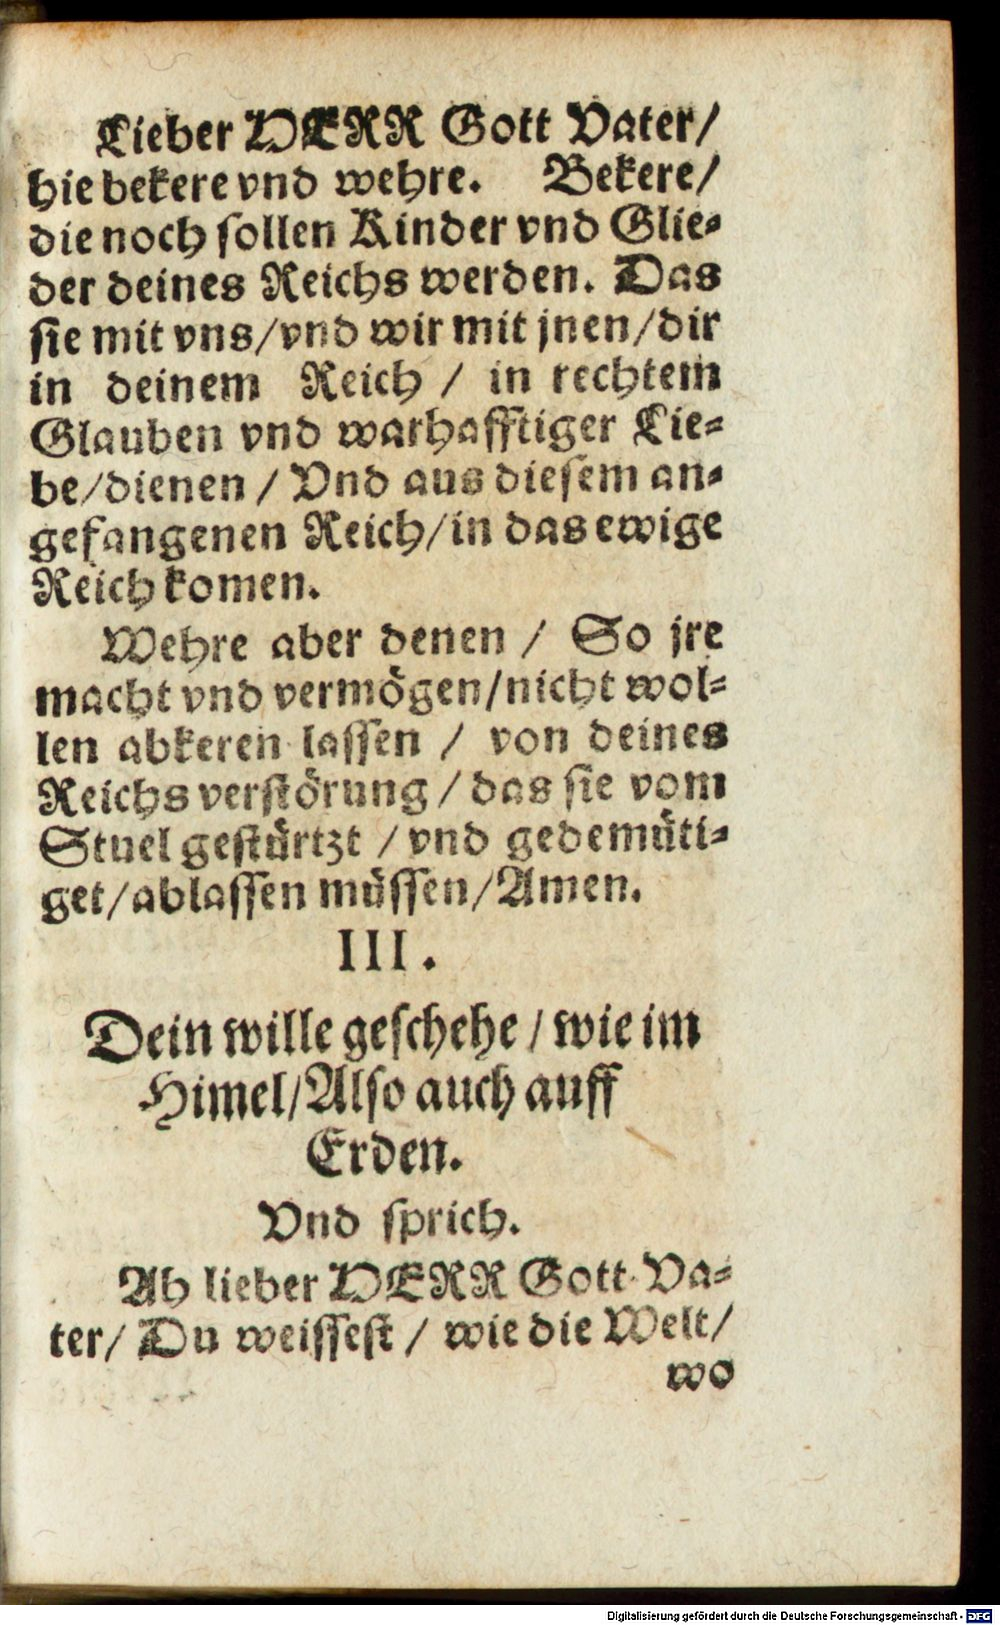 Lieber HERR Gott Vater/
hie bekere vnd wehre. Bekere/
die noch ſollen Kinder vnd Glie⸗
der deines Reichs werden. Das
ſie mit vns/vnd wir mit jnen/dir
in deinem Reich / in rechtem
Glauben vnd warhafftiger Lie⸗
be/dienen / Vnd aus dieſem an⸗
gefangenen Reich/in das ewige
Reich komen.
Wehre aber denen / So jre
macht vnd vermögen/nicht wol⸗
len abkeren laſſen / von deines
Reichs verſtörung / das ſie vom
Stuel geſtürtzt / vnd gedemüti⸗
get/ablaſſen müſſen/Amen.
III.
Dein wille geſchehe / wie im
Himel/Alſo auch auff
Erden.
Vnd ſprich.
Ah lieber HERR Gott Va⸗
ter/ Du weiſſeſt / wie die Welt/
wo
Digitalisierung gefördert durch die Deutsche Forschungsgemeinschaft - DFG